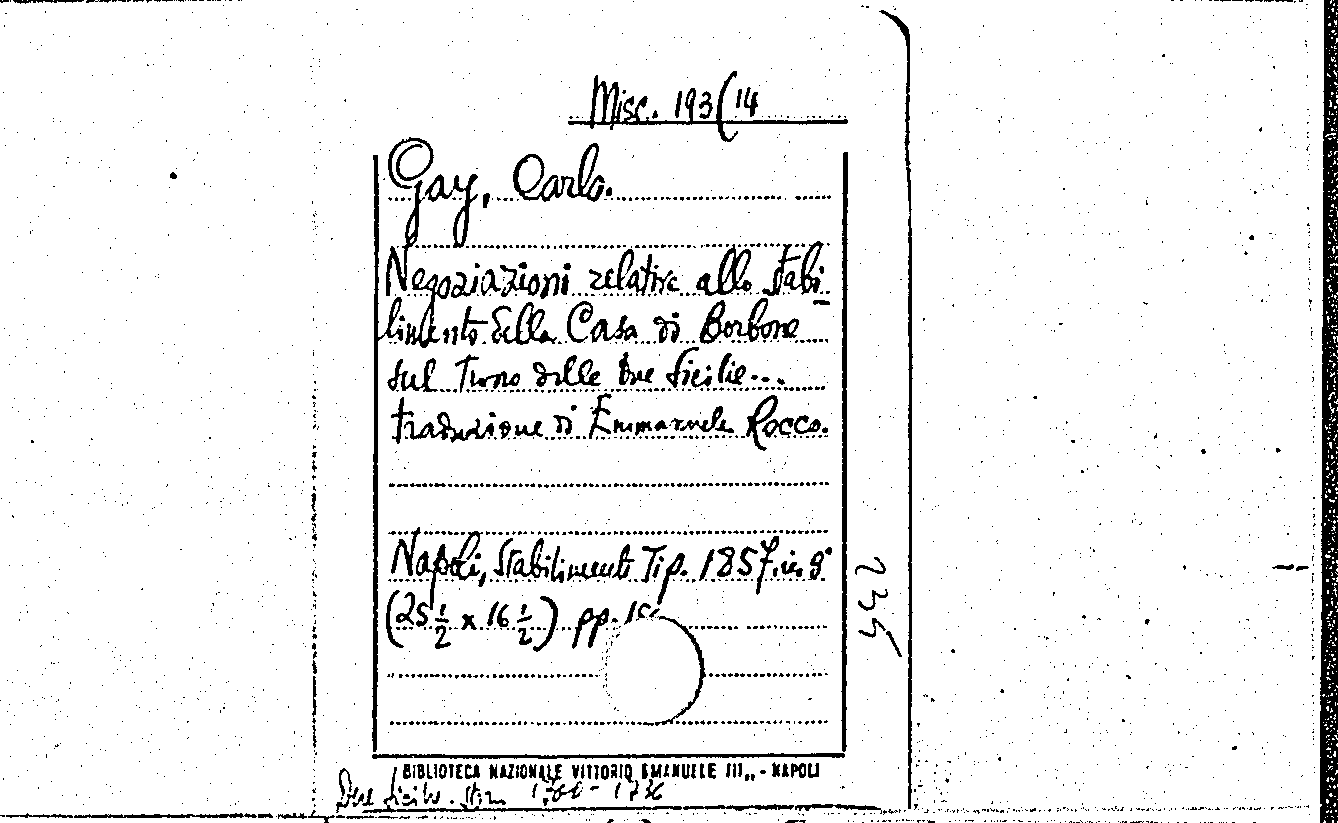 Misc. 193(14
Gay, Carlo.
Negoziazioni relative allo stabi-
limento della Casa di Borbone
sul Trono delle Due Sicilie...
traduzione di Emmanuele Rocco.
Napoli, Stabilimenti Tip. 1857. in 8°
(25 1/2 x 16 1/2) pp.
235
BIBLIOTECA NAZIONALE VITTORIO EMANUELE III,, - NAPOLI
Due Sicilie. Stor. 1700 - 1736